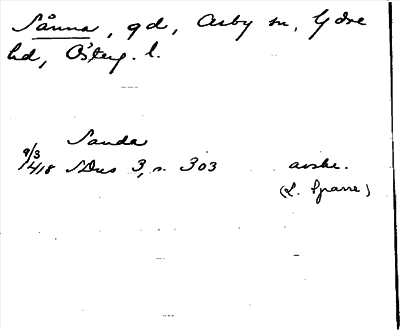 Sånna, gd, Asby sn, Ydre
hd, Österg. l.
Sanda
9/3 1418 SDns 3, s. 303 avskr.
(L. Sparre)